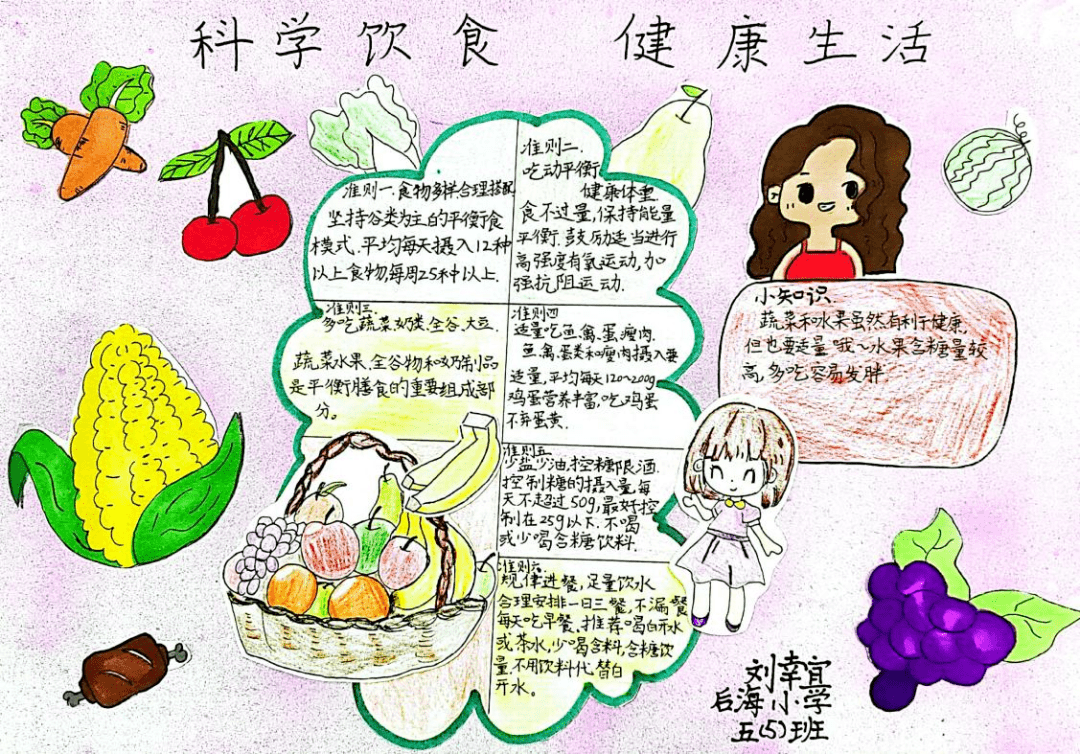 科学饮食 健康生活
准则一.食物多样,合理搭配
坚持谷类为主的平衡食
模式.平均每天摄入12种
以上食物,每周25种以上.
准则二.
吃动平衡
健康体重.
食不过量,保持能量
平衡.鼓励适当进行
高强度有氧运动,加
强抗阻运动.
准则三.
多吃蔬菜奶类、全谷、大豆.
蔬菜水果、全谷物和奶制品
是平衡膳食的重要组成部
分。
准则四
适量吃鱼、禽、蛋、瘦肉.
鱼、禽、蛋类和瘦肉摄入要
适量,平均每天120~200g
鸡蛋营养丰富,吃鸡蛋
不弃蛋黄.
准则五
少盐少油,控糖限酒.
控制糖的摄入量,每
天不超过50g,最好控
制在25g以下.不喝
或少喝含糖饮料.
准则六.
规律进餐,足量饮水
合理安排一日三餐,不漏餐
每天吃早餐.推荐喝白开水
或茶水,少喝含料,含糖饮
量,不用饮料代替白
开水。
小知识.
蔬菜和水果虽然有利于健康.
但也要适量哦~水果含糖量较
高,多吃容易发胖.
刘幸宜
后海小学
五(5)班